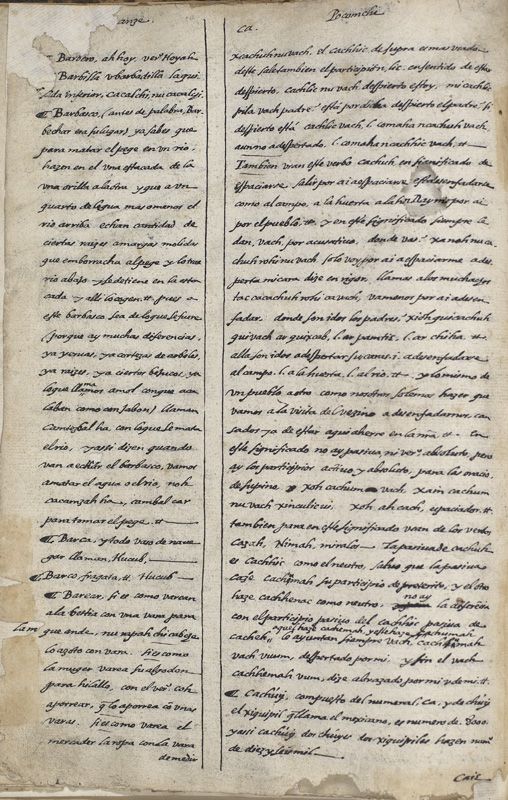 Pocomchi
ca.
Barbero, ah hoy, ver. Hoyoh
Barbilla v barbadilla la qui
jada inferior, cacalchi, nu cacalchi
Barbasco, (antes de palabra, Bar
bechar en fuligar) ya sabes que
para matar el pege en vn rio.
hazen en el vna estacada de la
vna orilla a la otra y que a vn
quarto de legua mas o menos el
rio arriba echan cantidad de
ciertas raizes amargas molidas
que emborracha al pege y lo trae
rio abajo y se detiene en la esta
cada y alli lo cogen. tt. pues a
este barbasco sea de lo que se fuere
(porque ay muchas diferencias,
ya yeruas, ya cortezas de arboles,
ya raizes, ya ciertos bejucos, ya
lo que llaman amol con que aca
laban como con jabon) llaman
ha con la que se mata
el rio, y assi dizen quando
van a echar el barbasco, vamos
a matar el agua o el rio, noh
cacamzah ha, cambal car
para tomar el pege. tt
Barca, y todo vaso de naue
gar llaman, Hucub,
Barco fragata, tt. Hucub
Barear, si es como varean
a la bestia con vna vara para
que ande, nu rapah chi cabeje
lo açoto con vara. si es como
la muger varea su algodon
para hilallo, con el ver. coh
aporrear, q lo aporrea con vnas
varas. si es como varea el
mercader la ropa con la vara
de medir
xcachuh nu vach, el cachlic de supra es mas vsado
deste sale tambien el participio en, lic. en sentido de estar
despierto. cachlic nu vach despierto estoy, mi cachlic
pila vach padre? esta por dicha despierto el padre? si
despierto está cachlic vach, l. comaha ncachuh vach,
aun no a despertado. l. comaha ncachlic vach, tt
Tambien vsan este verbo cachuh, en significado de
espaciarse, salir por ai a espaciarse este desenfadarse
como al campo, a la huerta a la
por el pueblo. tt y en este significado siempre le
dan, vach, por acusatiuo. donde vas? xa noh nu ca
chuh rohi nu vach solo voy por ai a espaciarme a des
pertar mi cara dize en rigor, llamas a los muchachos
tac cacachuh rohi ca vach, vamonos por ai a desen
fadar. donde son idos los padres? xoth quicachuh
qui vach ar quixcab, l. ar pamtix, l. ar chi ha. tt
alla son idos a despertar sus caras. i. a desenfadarse
al campo. l. a la huerta, l. al rio. tt y lo mismo de
vn pueblo a otro como nosotros solemos hazer que
vamos a la visita del vezino a desenfadarnos, can
sados ya de estar aqui dentro en la tt. En
este significado no ay pasiua ni ver. absoluto, pero
ay los participios actiuo, y absoluto, para las oracio.
de supino xoh cachum vach, xain cachum
nu vach xinculicui. xoh, ah cach, espaciador. tt.
tambien para en este significado vsan de los verbos
cazah, Nimah, miralos La pasiua de cachuh
es cachhic como el neutro, saluo que la pasiua
haze cachhimah su participio de preterito, y el otro
haze cachhenac como neutro. no ay la distincion
con el participio pasiuo del cachhic pasiua de
cacheh, que este haze cachemah, y este haze cachumah
lo ayuntan siempre vach, cachhimah
vach vuum, despertado por mi. y sin el vach
cachhemah vum, dize abrazado por mi v de mi. tt
Cachuy, compuesto del numeral, ca, y de chuy
el xiquipil q llama el mexicano, es numero de 8000.
y assi cachuy dos chuyes dos xiquipiles hazen num.
de diez y seis mil.
Caic